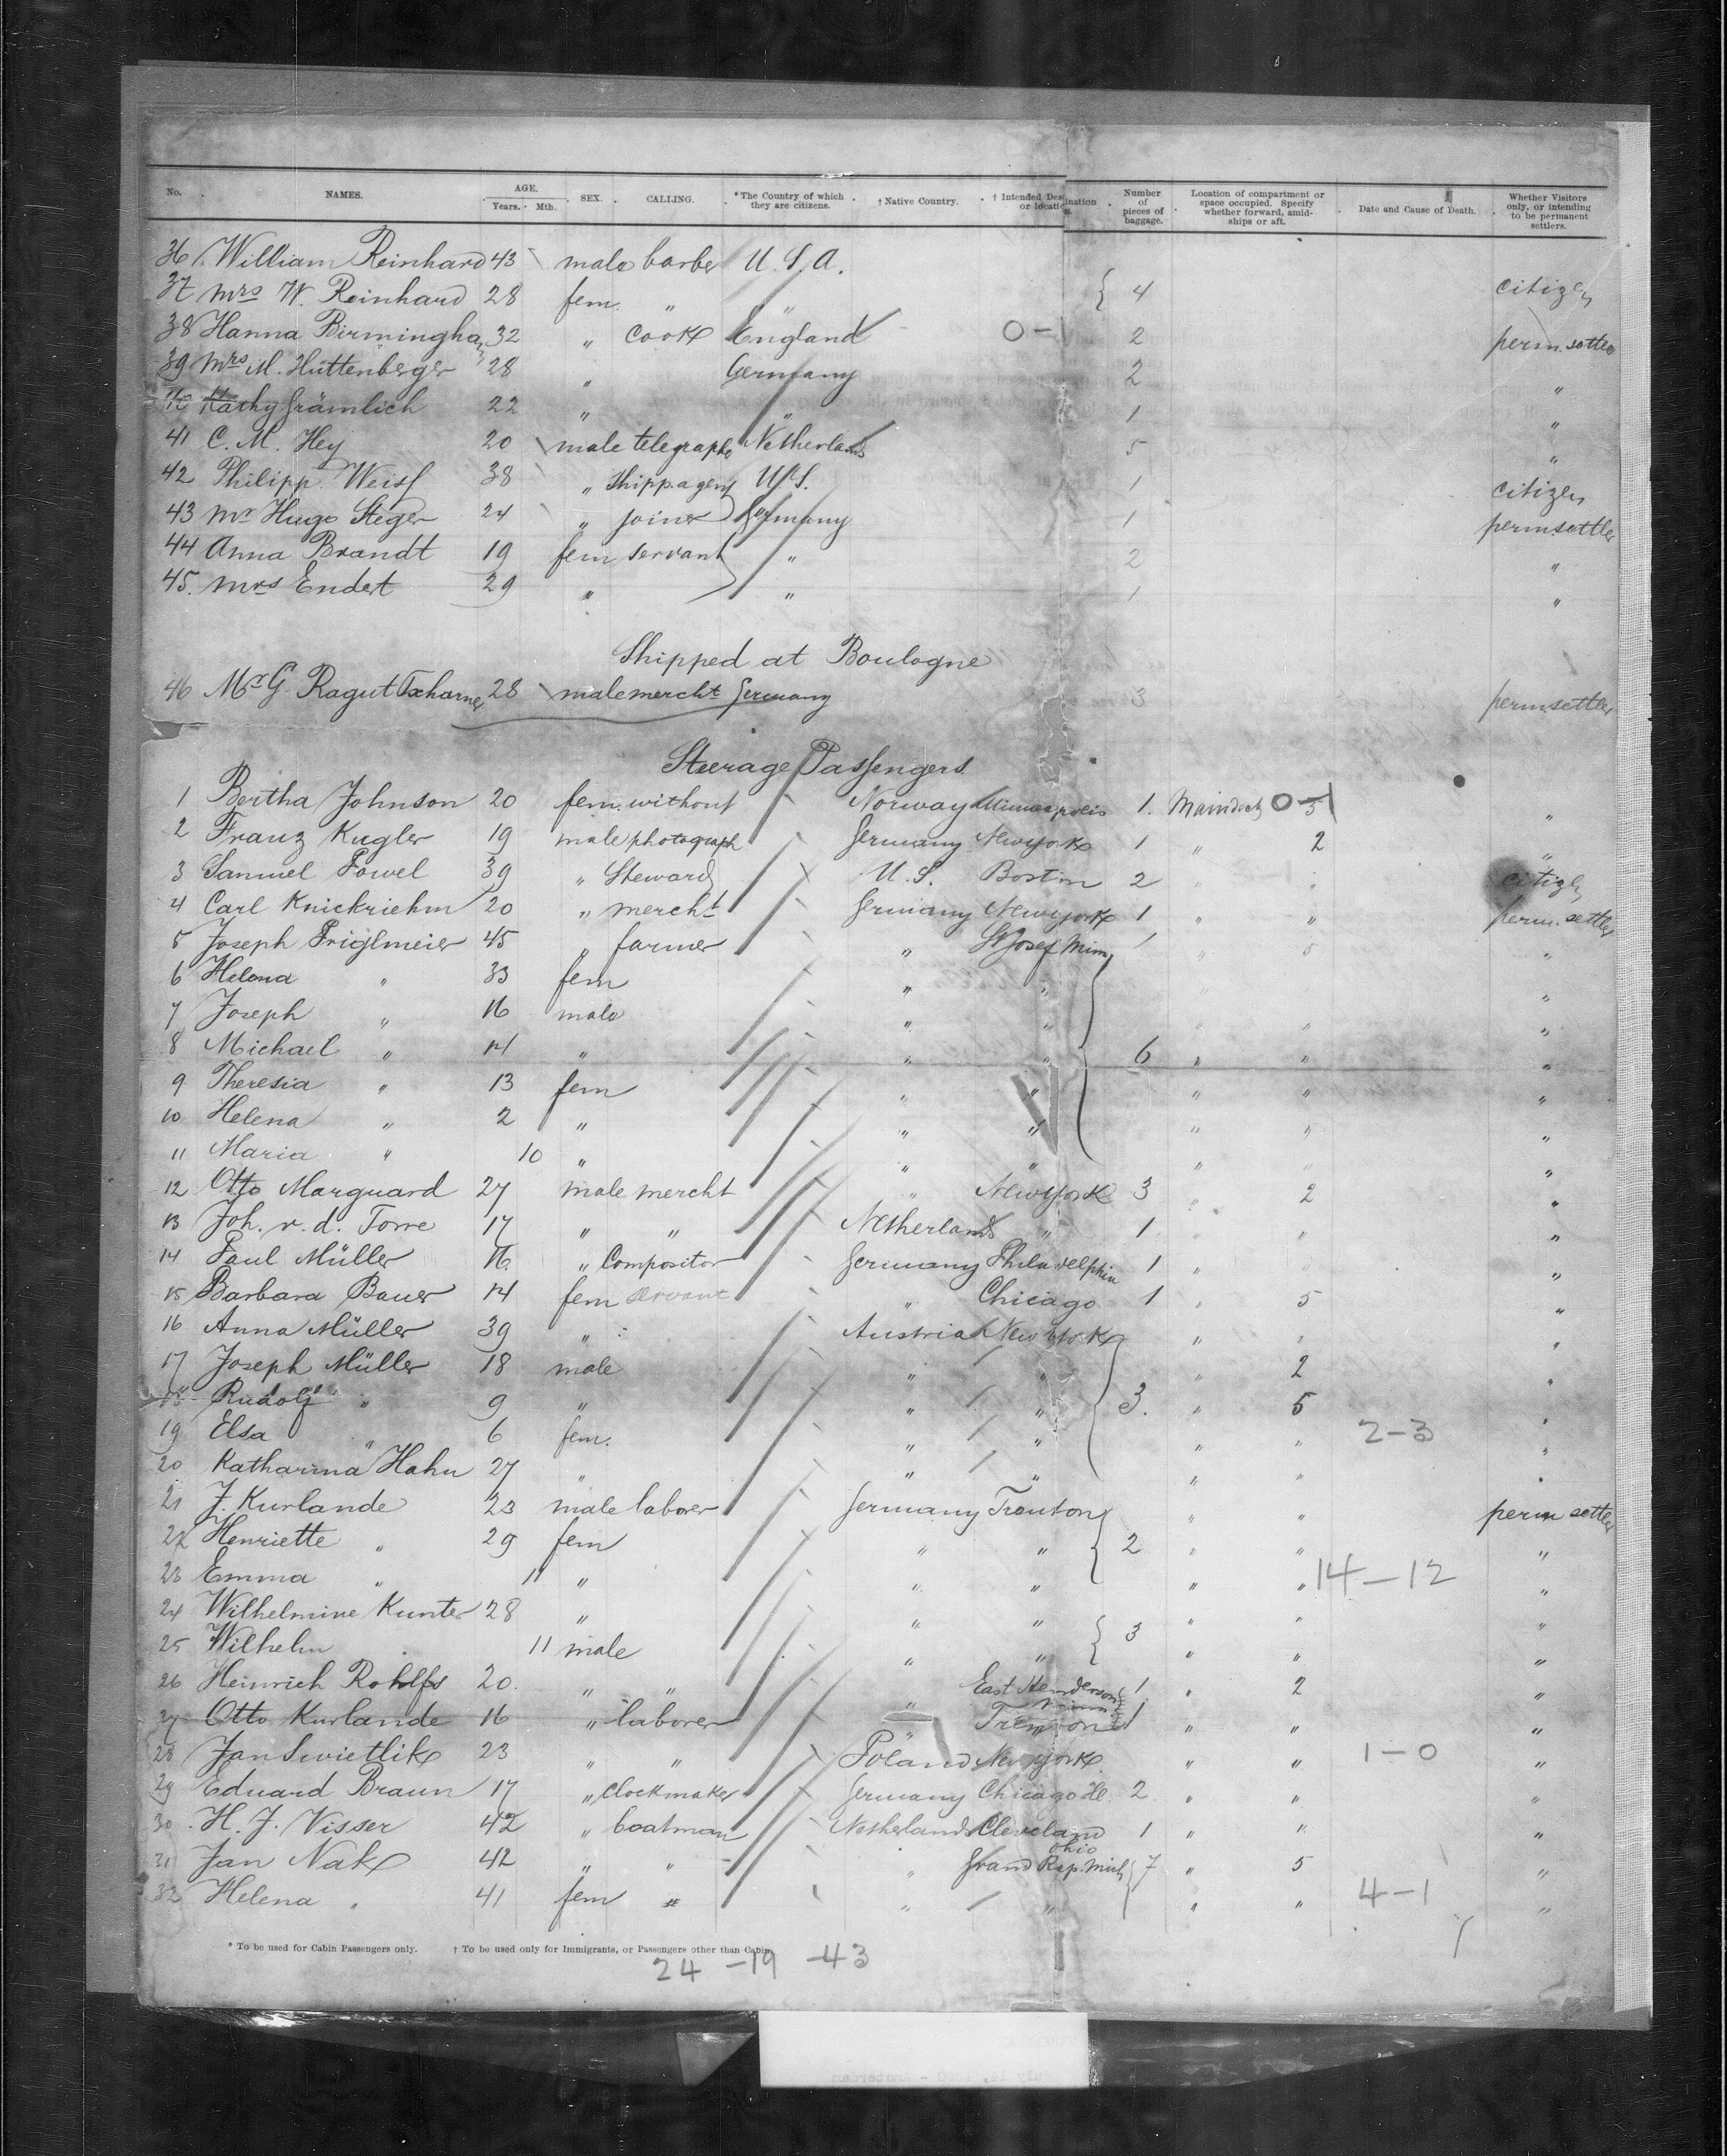 No. NAMES. AGE. Years. Mth. SEX. CALLING. *The Country of which they are citizens. † Native Country. † Intended Destination or location. Number of pieces of baggage. Location of compartment or space occupied. Specify whether forward, amidships or aft. Date and Cause of Death. Whether Visitors only, or intending to be permanent settlers.
36 William Reinhard 43 male barber U.S.A.
37 Mrs W. Reinhard 28 fem. " " { 4 citizen
38 Hanna Birmingham 32 " cook England 0-1 2 perm. settler
39 Mrs M. Hüttenberger 28 " Germany 2 "
40 Kathy Främlich 22 " " 1 "
41 C. M. Hey 20 male telegraphe Netherlands 5 "
42 Philipp Weiss 38 " Shipp.agent U.S. 1 citizen
43 Mr Hugo Steger 24 " joiner Germany 1 perm.settler
44 Anna Brandt 19 fem servant " 2 "
45. Mrs Endert 29 " " 1 "
Shipped at Boulogne
46 Mr G. Ragut Tscharner 28 male mercht Germany 3 perm.settler
Steerage Passengers
1 Bertha Johnson 20 fem. without Norway Minneapolis 1. Maindeck 0-1 5 "
2 Franz Kugler 19 male photograph Germany New york 1 " 2 "
3 Samuel Powel 39 " Steward U.S. Boston 2 " " citizen
4 Carl Knickriehm 20 " mercht Germany New york 1 " " perm. settler
5 Joseph Priglmeier 45 " farmer " St Josef Minn 1 " 5 "
6 Helena " 33 fem " " "
7 Joseph " 16 male " " " " "
8 Michael " 14 " " " 6 " " "
9 Theresia " 13 fem " " " " "
10 Helena " 2 " " " " " "
11 Maria " 10 " " " " " "
12 Otto Marguard 27 male mercht " New york 3 " 2 "
13 Joh. v. d. Torre 17 " " Netherlands " 1 " " "
14 Paul Müller 16. " Compositor Germany Philadelphia 1 " "
15 Barbara Bauer 14 fem servant " Chicago 1 " 5 "
16 Anna Müller 39 " Austria New York " " "
17 Joseph Müller 18 male " " " 2 "
18 Rudolf " 9 " " " 3. " 5 "
19 Elsa " 6 fem. " " " " 2-3 "
20 Katharina Hahn 27 " " " " " "
21 J. Kurlande 23 male laborer Germany Trenton " " perm settler
22 Henriette " 29 fem " " { 2 " " "
23 Emma " 11 " " " " " 14-12 "
24 Wilhelmine Kunter 28 " " " " " "
25 Wilhelm 11 male " " { 3 " " "
26 Heinrich Rohlfs 20. " " East Henderson Minn 1. " 2 "
27 Otto Kurlande 16 " laborer " Trenton 1 " " "
28 Jan Swietlik 23 " " Poland New york " " 1-0 "
29 Eduard Braun 17 " clockmaker Germany Chicago Ill. 2 " " "
30 H. J. Visser 42 " boatman Netherlands Cleveland Ohio 1 " " "
31 Jan Nak 42 " " " Grand Rap. Mich { 7 " 5 "
32 Helena " 41 fem " " " " " 4-1 "
* To be used for Cabin Passengers only. † To be used only for Immigrants, or Passengers other than Cabin.
24 -19 -43